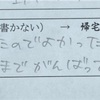 書かない) → 帰宅
たのでよかった
までがんばっ